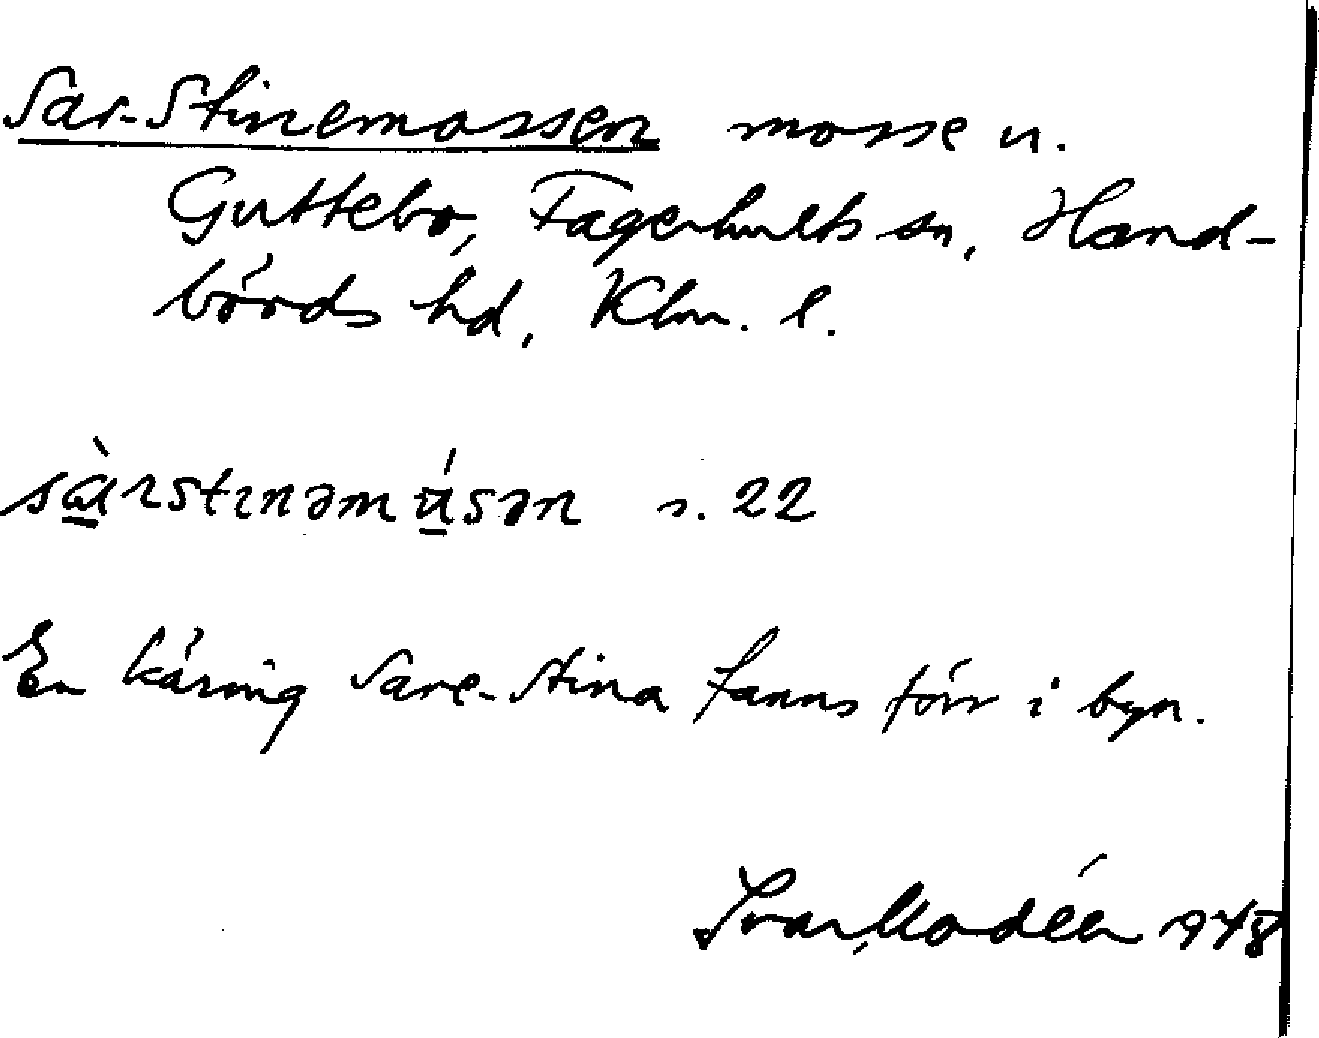 Sar-Stinemossen mosse u.
Guttebo, Fagerhults sn, Hand-
börds hd, Klm. l.
sàrstɪnəmúsən s. 22
En käring Sare-Stina fanns förr i byn.
Ivar Modéer 1948